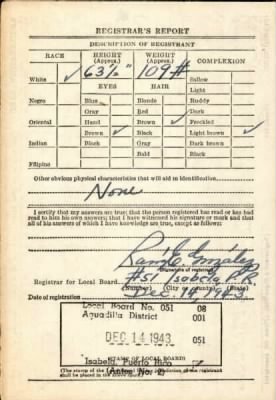 REGISTRAR'S REPORT
DESCRIPTION OF REGISTRANT
RACE HEIGHT (Approx.) WEIGHT (Approx.) COMPLEXION
White ✓ 63½" 109# Sallow
EYES HAIR Light
Negro Blue Blonde Ruddy
Gray Red Dark
Oriental Hazel Brown ✓ Freckled
Brown ✓ Black Light brown ✓
Indian Black Gray Dark brown
Bald Black
Filipino
Other obvious physical characteristics that will aid in identification
None
I certify that my answers are true; that the person registered has read or has had
read to him his own answers; that I have witnessed his signature or mark and that
all of his answers of which I have knowledge are true, except as follows:
González
(Signature of registrar)
Registrar for Local Board #51 Isabela P.R.
(Number) (City or county) (State)
Date of registration Dec. 14, 1943
Local Board No. 051 08
Aguadilla District 001
DEC 14 1943 051
Isabela, Puerto Rico
(STAMP OF LOCAL BOARD)
(Antes No. 2)
(The stamp of the
shall be placed in the above space)